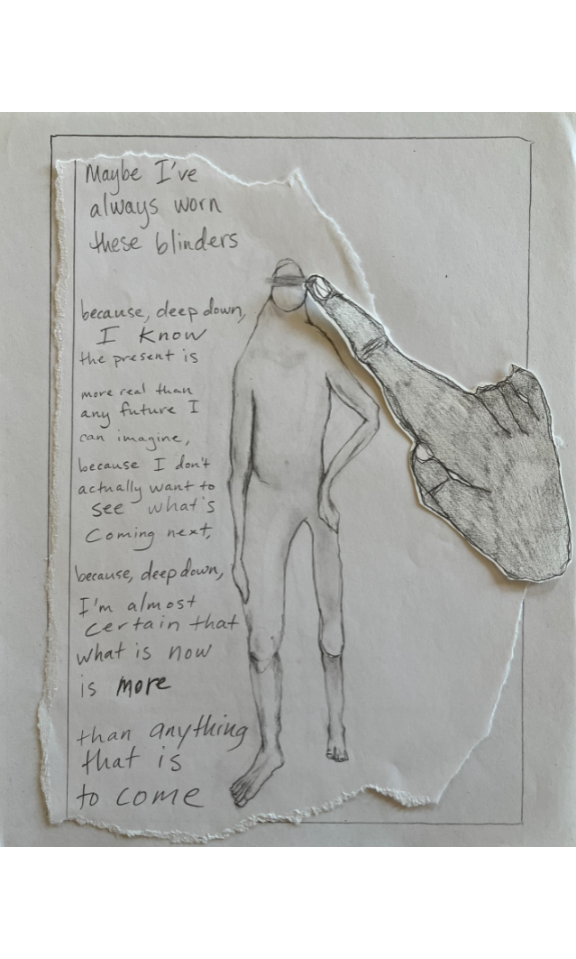 Maybe I've
always worn
these blinders
because, deep down,
I know
the present is
more real than
any future I
can imagine,
because I don't
actually want to
see what's
Coming next,
because, deep down,
I'm almost
certain that
what is now
is more
than anything
that is
to come